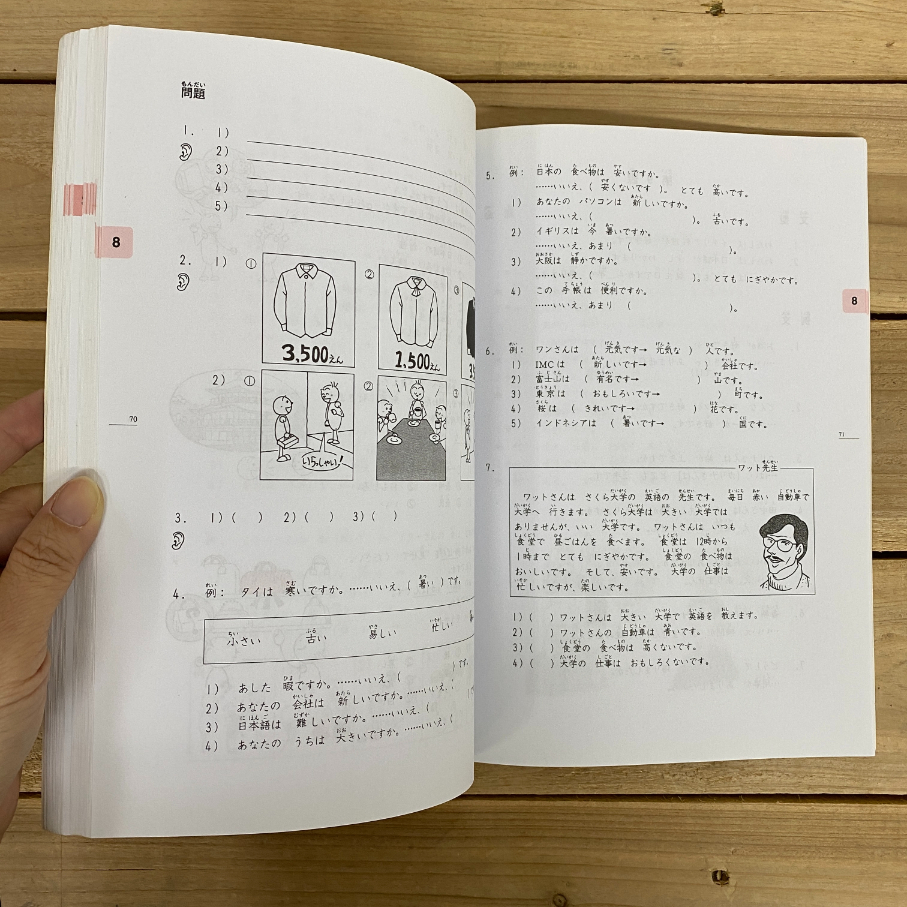 問題
1. 1)
2)
3)
4)
5)
8
2. 1) ① ② ③
3,500えん
1,500えん
2) ① ②
いらっしゃい!
70
3. 1) ( ) 2) ( ) 3) ( )
4. 例: タイは 寒いですか。……いいえ、( 暑い ) です。
小さい 古い 易しい 忙しい
1) あした 暇ですか。……いいえ、( ) です。
2) あなたの 会社は 新しいですか。……いいえ、(
3) 日本語は 難しいですか。……いいえ、(
4) あなたの うちは 大きいですか。……いいえ、(
5. 例: 日本の 食べ物は 安いですか。
……いいえ、( 安くないです )。 とても 高いです。
1) あなたの パソコンは 新しいですか。
……いいえ、( )。 古いです。
2) イギリスは 今 暑いですか。
……いいえ、あまり ( )。
3) 大阪は 静かですか。
……いいえ、( )。 とても にぎやかです。
4) この 手帳は 便利ですか。
……いいえ、あまり ( )。
8
6. 例: ワンさんは ( 元気です→ 元気な ) 人です。
1) IMCは ( 新しいです→ ) 会社です。
2) 富士山は ( 有名です→ ) 山です。
3) 東京は ( おもしろいです→ ) 町です。
4) 桜は ( きれいです→ ) 花です。
5) インドネシアは ( 暑いです→ ) 国です。
71
7.
ワット先生
ワットさんは さくら大学の 英語の 先生です。 毎日 赤い 自動車で
大学へ 行きます。 さくら大学は 大きい 大学では
ありませんが、いい 大学です。 ワットさんは いつも
食堂で 昼ごはんを 食べます。 食堂は 12時から
1時まで とても にぎやかです。 食堂の 食べ物は
おいしいです。 そして、安いです。 大学の 仕事は
忙しいですが、楽しいです。
1) ( ) ワットさんは 大きい 大学で 英語を 教えます。
2) ( ) ワットさんの 自動車は 青いです。
3) ( ) 食堂の 食べ物は 高くないです。
4) ( ) 大学の 仕事は おもしろくないです。